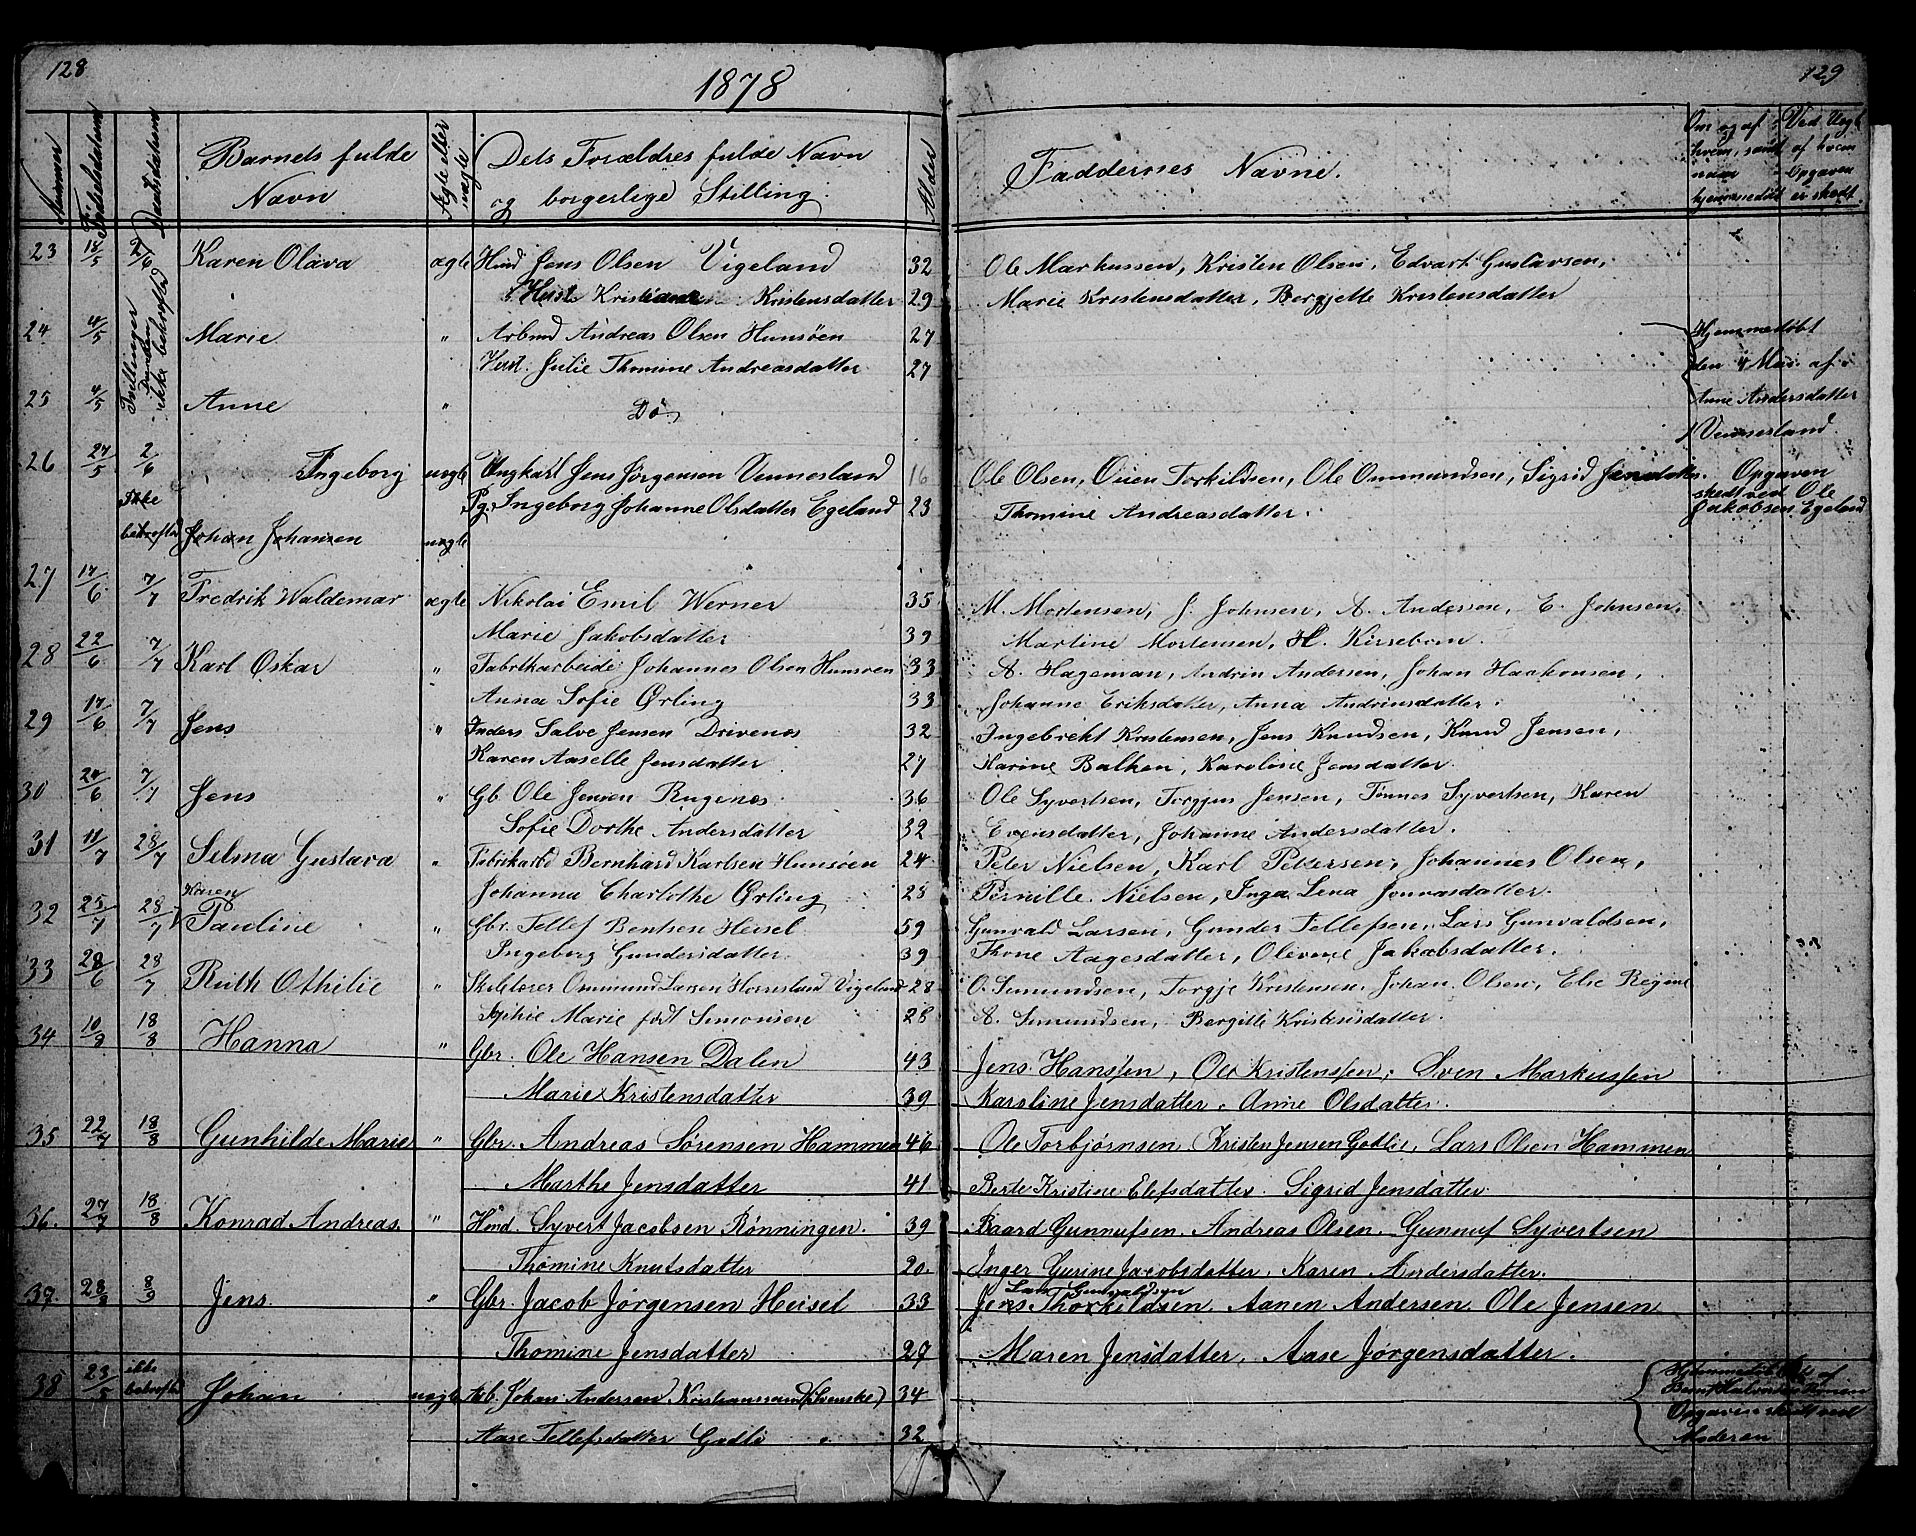 128
1878
129
Nummer
Fødselsdatum
Daabsdatum
Barnets fulde
Navn
Ægte eller
uægte
Dets Forældres fulde Navn
og borgerlige Stilling.
Alder
Faddernes Navne.
Om og af
hvem, samt
naar
hjemmedøbt
Ved Uegte
af hvem
Opgaven
er skedt
23 18/5 2/6 Karen Olava ægte Hmd Jens Olsen Vigeland 32 Ole Markussen, Kristen Olsen, Edvart Gustavsen,
Hust. Kristiane Kristensdatter 29 Marie Kristensdatter, Bergjette Kristensdatter
Tvillinger
Daaben
ikke bekræftet
24 4/5 Marie " Arbmd Andreas Olsen Hunsøen 27
Hust. Julie Thomine Andreasdatter 27
25 4/5 Anne " Do.
Hjemmedøbt
den 4 Mai af
Anne Andersdatter
Vennesland
26 27/5 2/6 Ingeborg uægte Ungkarl Jens Jørgensen Vennesland 16 Ole Olsen, Ouen Torkildsen, Ole Ommundsen, Sigrid Jensdatter.
Pg. Ingeborg Johanne Olsdatter Egeland 23 Thomine Andreasdatter.
Opgaven
skedt ved Ole
Jakobsen Egeland
Ikke
bekræftet Johan Johansen uægte
27 17/6 7/7 Fredrik Waldemar ægte Nikolai Emil Werner 35 M. Mortensen, J. Johnsen, A. Andersen, E. Johnsen,
Marie Jakobsdatter 39 Martine Mortensen, H. Kirsebom.
28 22/6 7/7 Karl Oskar " Fabrikarbeide Johannes Olsen Hunsøen 33 A. Hageman, Andrin Andersen, Johan Haakonsen,
Anna Sofie Ørling 33 Johanne Eriksdatter, Anna Andrinsdatter.
29 17/6 7/7 Jens " Inders Salve Jensen Drivenes 32 Ingebrekt Kristensen, Jens Knudsen, Knud Jensen,
Karen Aaselle Jensdatter 27 Karine Balken, Karoline Jensdatter.
30 24/6 7/7 Jens " Gb. Ole Jensen Rugenes 36 Ole Syvertsen, Torgjus Jensen, Tønnes Syvertsen, Karen
Sofie Dorthe Andersdatter 32 Evensdatter, Johanne Andersdatter.
31 11/7 28/7 Selma Gustava " Fabrikarbd Bernhard Karlsen Hunsøen 24 Peter Nielsen, Karl Pettersen, Johannes Olsen,
Johanna Charlothe Ørling 28 Pernille Nielsen, Inga Lena Jonnasdatter.
Karen
32 25/7 28/7 Pauline " Gbr. Tellef Bentsen Heisel 59 Gunvald Larsen, Gunder Tellefsen, Lars Gunvaldsen,
Ingeborg Gundersdatter 39 Thone Aagesdatter, Olivine Jakobsdatter.
33 28/6 28/7 Ruth Othilie " Skolelærer Ommund Larsen Horrisland Vigeland 28 O. Simundsen, Torgje Kristensen, Johan Olsen, Else Regine
Sophie Marie født Simonsen 28 A. Simundsen, Bergitte Kristensdatter.
34 10/8 18/8 Hanna " Gbr. Ole Hansen Dalen 43 Jens Hanssen, Ole Kristenssen, Sven Markussen
Marie Kristensdatter 39 Karoline Jensdatter. Anne Olsdatter.
35 22/7 18/8 Gunhilde Marie " Gbr. Andreas Sørensen Hammen 46 Ole Torbjørnsen, Kristen Jensen Gotlie, Lars Olsen Hammen
Marthe Jensdatter 41 Berte Kristine Elefsdatter. Sigrid Jensdatter
36. 27/7 18/8 Konrad Andreas. " Hmd. Syvert Jacobsen Rønningen. 39 Baard Gunnufsen. Andreas Olsen. Gunnuf Syvertsen
Thomine Knutsdatter 20. Inger Gurine Jacobsdatter. Karen Andersdatter.
Lars Gunvaldsen
37. 28/8 8/9 Jens. " Gbr. Jacob Jørgensen Heisel 33 Jens Thorkildsen. Aanen Andersen. Ole Jensen
Thomine Jensdatter 27 Maren Jensdatter. Aase Jørgensdatter.
38 23/5 ikke
bekræftet Johan uægte Arb. Johan Andersen Kristianssand (Svenske) 34
Aase Tellefsdatter Godli 32
Hjemmedøbt af
Opgaven skedt ved
Moderen